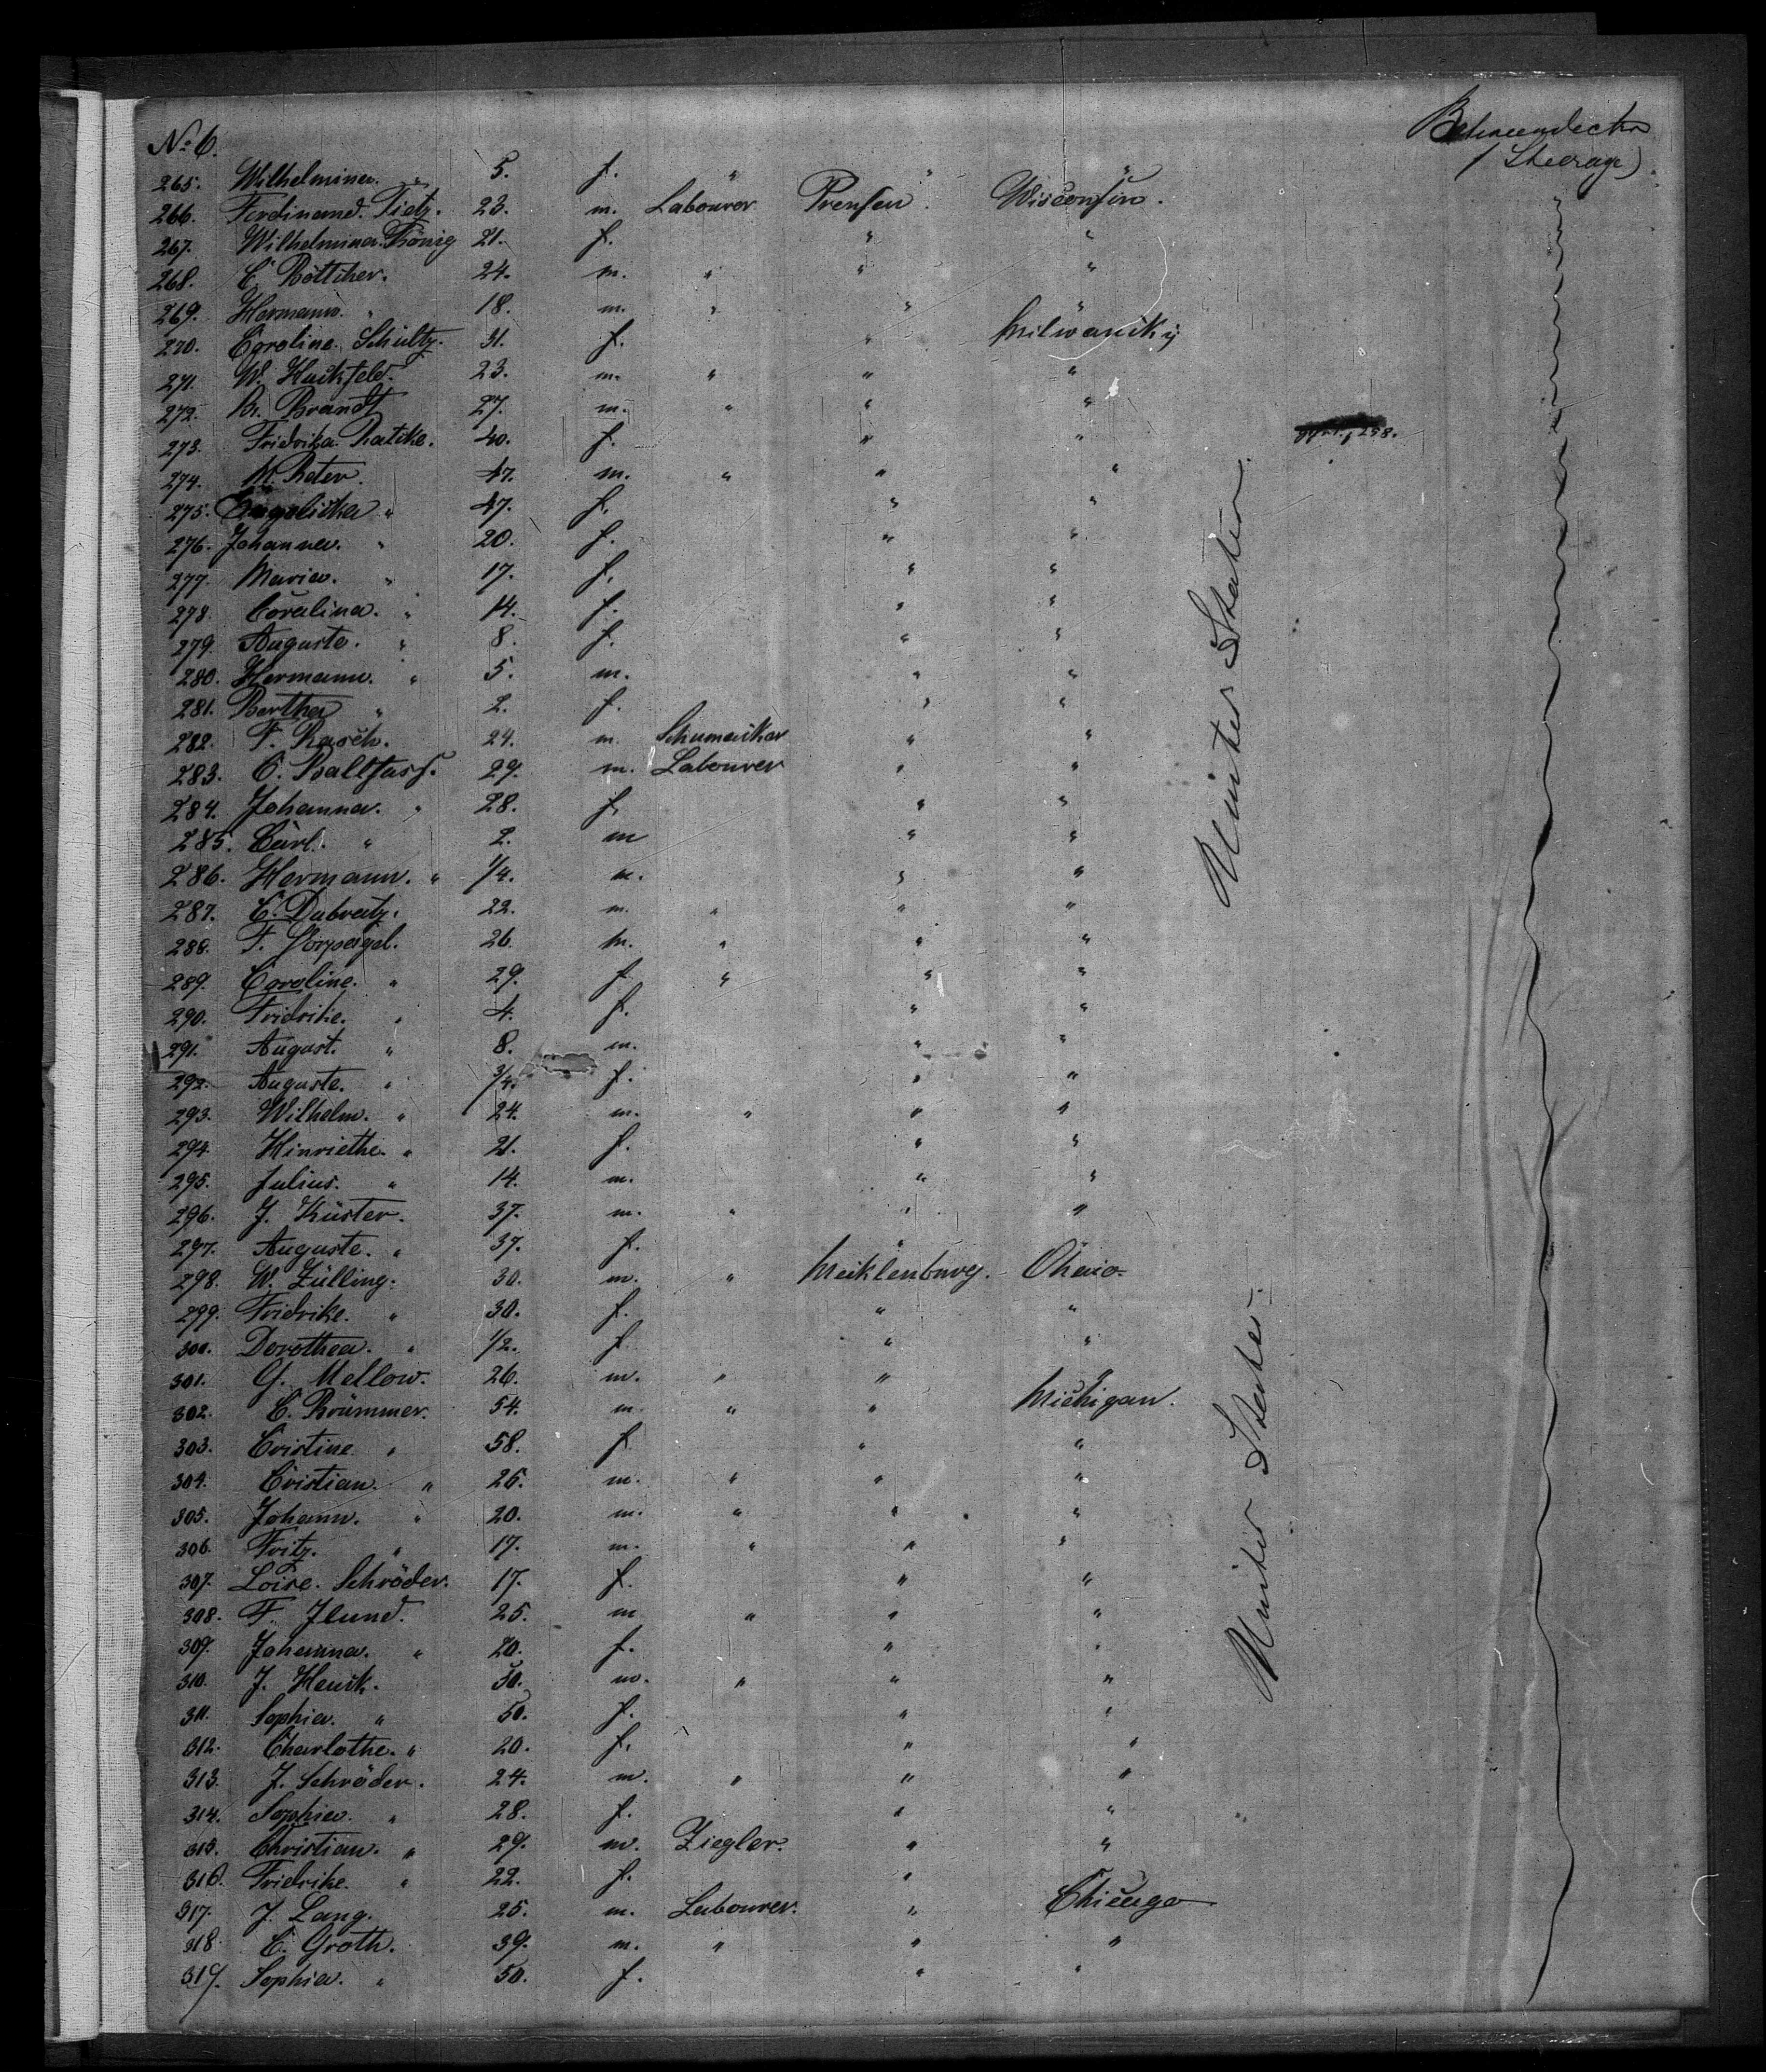 No. 6. Betweendeckn
( Steerage)
265. Wilhelmine. " 5. f. " " "
266. Ferdinand. Tietz. 23. m. Labourer Prensen. Wisconsin.
267. Wilhelmine. König 21. f. " "
268. C. Böttcher. 24. m. " " "
269. Hermann. " 18. m. " " "
270. Caroline. Schultz. 31. f. " Milwaucky
271. W. Huckfeld. 23. m. " " "
272. Br. Brandt 27. m. " " "
273. Fridrika. Ratike. 40. f. " " 258.
274. M. Reter. 47. m. " " "
275. Engelicka " 47. f. " "
276. Johanna. " 20. f. " "
277. Maria. " 17. f. " "
278. Coralina. " 14. f. " "
279. Auguste. " 8. f. " "
280. Hermann. " 5. m. " "
281. Bertha " 2. f. " "
282. F. Rasch. 24. m. Schumacker " "
283. C. Balltfass. 29. m. Labourer " "
284. Johanna. " 28. f. " "
285. Carl. " 2. m " "
286. Hermann. " 1/4. m. " "
287. C. Dubratz. 22. m. " " "
288. F. 26. m. " " "
289. Caroline. " 29. f. " " "
290. Fridrike. " 4. f. " "
291. August. " 8. m. " "
292. Auguste. " 3/4. f. " "
293. Wilhelm. " 24. m. " " "
294. Hinriethe. " 21. f. " "
295. Julius. " 14. m. " "
296. J. Küster. 37. m. " " "
297. Auguste. " 37. f. "
298. W. Zülling. 30. m. " Mecklenburg. Ohaio.
299. Fridrike. " 30. f. " "
300. Dorothea. " 1/2. f. " "
301. G. Mellow. 26. m. " " "
302. C. Brümmer. 54. m. " " Michigan.
303. Cristine " 58. f. " "
304. Cristian. " 25. m. " " "
305. Johann. " 20. m. " " "
306. Fritz. " 17. m. " " "
307. Loise. Schröder. 17. f. " "
308. F. Jlund. 25. m " " "
309. Johanna. " 20. f. " "
310. J. Hauck. 50. m. " " "
311. Sophia. " 50. f. " "
312. Charlothe. " 20. f. " "
313. J. Schröder. 24. m. " " "
314. Sophia. " 28. f. " "
315. Christian. " 29. m. Ziegler. " "
316. Fridrike. " 22. f. "
317. J. Lang. 25. m. Labourer. " Chicago
318 C. Groth. 39. m. " " "
319. Sophia. " 50. f. " "
Unites States.
Unites States.